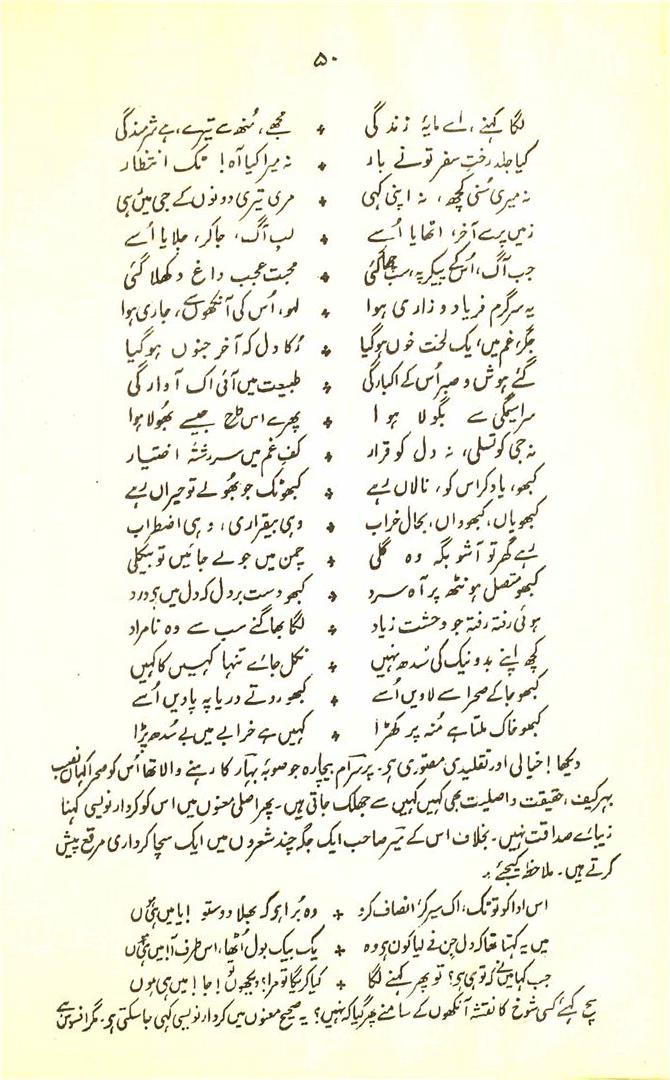 ۵۰
لگا کہنے، اے مایۂ زندگی ٭ مجھے، مُنھ سے تیرے، ہے شرمندگی
کیا جلد رختِ سفر تونے بار ٭ نہ میرا کیا آہ! تک انتظار
نہ میری سُنی کچھ، نہ اپنی کہی ٭ مری تیری دونوں کے جی میں رہی
زمیں پر سے آخر، اٹھایا اُسے ٭ لبِ آگ، جاکر، جلایا اُسے
جب آگ، اُس کے پیکر پہ، سب چھا گئی ٭ محبت عجب داغ دکھلا گئی
یہ سرگرمِ فریاد و زاری ہوا ٭ لہو، اُس کی آنکھوں سے، جاری ہوا
جگر، غم میں، یک لخت خوں ہوگیا ٭ رُکا دل کہ آخر جنوں ہوگیا
گئے ہوش و صبر اُس کے اکبارگی ٭ طبیعت میں آئی اک آوارگی
سراسیمگی سے بگولا ہوا ٭ پھرے اس طرح جیسے بھولا ہوا
نہ جی کو تسلی، نہ دل کو قرار ٭ کفِ غم میں سررشتۂ اختیار
کبھو، یاد کر اس کو، نالاں رہے ٭ کبھو تک جو بھولے تو حیراں رہے
کبھو یاں، کبھو واں، بحال خراب ٭ وہی بیقراری، وہی اضطراب
رہے گھر تو آشوبگہ وہ گلی ٭ چمن میں جو لے جائیں تو بیکلی
کبھو متصل ہونٹھ پر آہ سرد ٭ کبھو دست بر دل کہ دل میں ہے درد
ہوئی رفتہ رفتہ جو وحشت زیاد ٭ لگا بھاگنے سب سے وہ نامراد
کچھ اپنے بد و نیک کی سُدھ نہیں ٭ نکل جائے تنہا کہیں کا کہیں
کبھو جاکے صحرا سے لاویں اُسے ٭ کبھو روتے دریا پہ پاویں اُسے
کبھو خاک ملتا ہے مُنہ پر کھڑا ٭ کہیں ہے خرابے میں بے سُدھ پڑا
دیکھا! خیالی اور تقلیدی مصوّری ہے۔ پرسرام بیچارہ جو صوبۂ بہار کا رہنے والا تھا اُس کو صحرا کہاں نصیب
بہرکیف، حقیقت و اصلیت بھی کہیں کہیں سے جھلک جاتی ہیں۔ پھر اصلی معنوں میں اس کو کردار نویسی کہنا
زیبائے صداقت نہیں۔ بخلاف اس کے میر صاحب ایک جگہ چند شعروں میں ایک سچا کرداری مرقع پیش
کرتے ہیں۔ ملاحظہ کیجئے۔
اس ادا کو تو تک، اک سیر کر، انصاف کرو ٭ وہ بُرا ہے گہ بھلا دوستو! یا میں ہی ہوں
میں یہ کہتا تھا کہ دل جن نے لیا کون ہے وہ ٭ یک بیک بول اُٹھا، اس طرف آ! میں ہی ہوں
جب کہا میں نے کہ تو ہی ہے؟ تو پھر کہنے لگا ٭ کیا کریگا تو مرا؟ دیکھوں تو! جا! میں ہی ہوں
سچ کہئے کسی شوخ کا نقشہ آنکھوں کے سامنے پھر گیا کہ نہیں؟ یہ صحیح معنوں میں کردار نویسی کہی جاسکتی ہے۔ مگر افسوس ہے